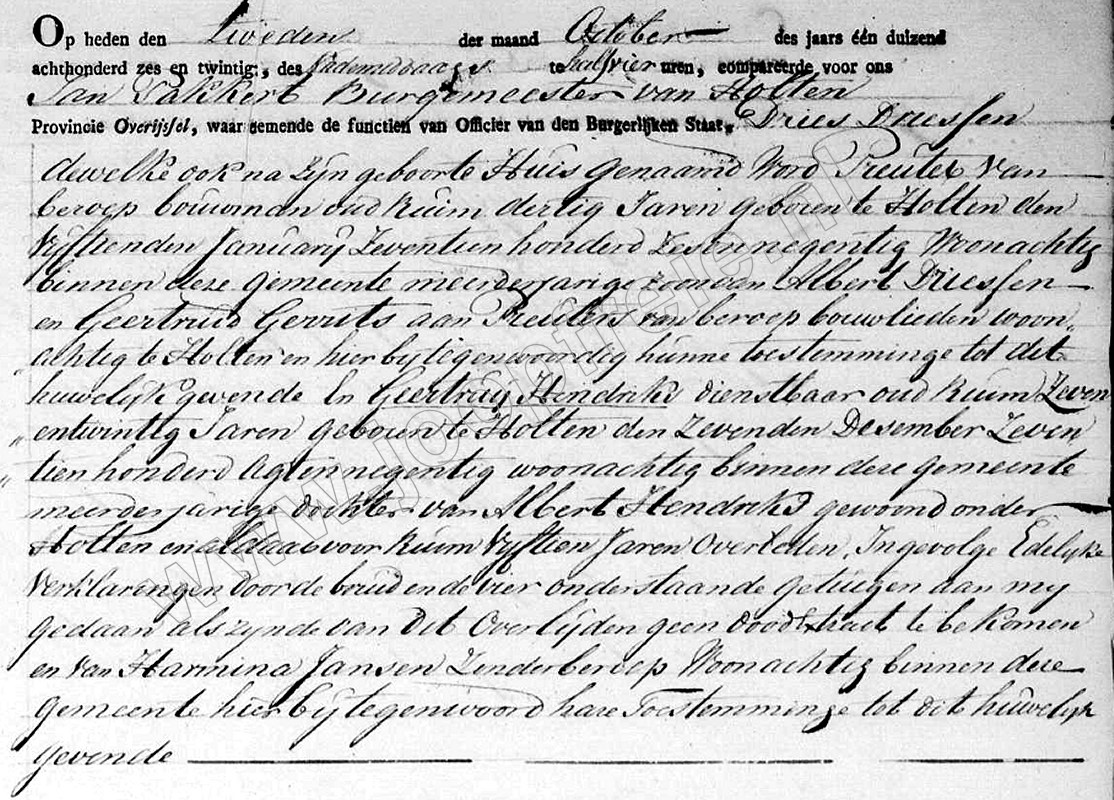 Op heden den tweeden der maand October des jaars één duizend
achthonderd zes en twintig, des nademiddaags te half vier uren, compareerde voor ons
Jan Vakkert Burgemeester van Holten
Provincie Overijssel, waarnemende de functien van Officier van den Burgerlijken Staat, Dries Driessen
dewelke ook na zyn geboorte Huis genaamd Word Treuter Van
beroep bouwman oud Ruim dertig Jaren geboren te Holten den
Vyftienden January Zeventien honderd Zesennegentig Woonachtig
binnen deze gemeente meerderjarige zoon van Albert Driessen
en Geertruid Gerrits aan Treuters van beroep bouwlieden woon„
achtig te Holten en hier bytegenwoordig hunne toestemminge tot dit
huwelyk gevende En Geertruy Hendriks dienstbaar oud Ruim Zeven
„entwintig Jaren geboren te Holten den Zevenden Desember Zeven
„tien honderd Agtennegentig woonachtig binnen deze gemeente
meerderjarige dochter van Albert Hendriks gewoond onder
Holten en aldaar voor Ruim Vyftien Jaren Overleden, Ingevolge Edelyke
Verklaringen door de bruid en de vier onderstaande getuigen aan my
gedaan als zynde van Dit Overlyden geen doodextract te bekomen
en van Harmina Jansen Zonder beroep Woonachtig binnen deze
gemeente hier bytegenwoord hare Toestemminge tot dit huwelyk
gevende
www.jooptrele.nl